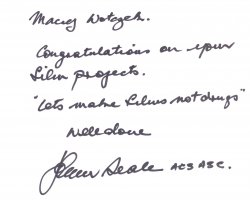 Maciej Wotczak.
Congratulations on your
film projects.
"Lets make films not drugs"
Well done
John Seale ACS ASC.